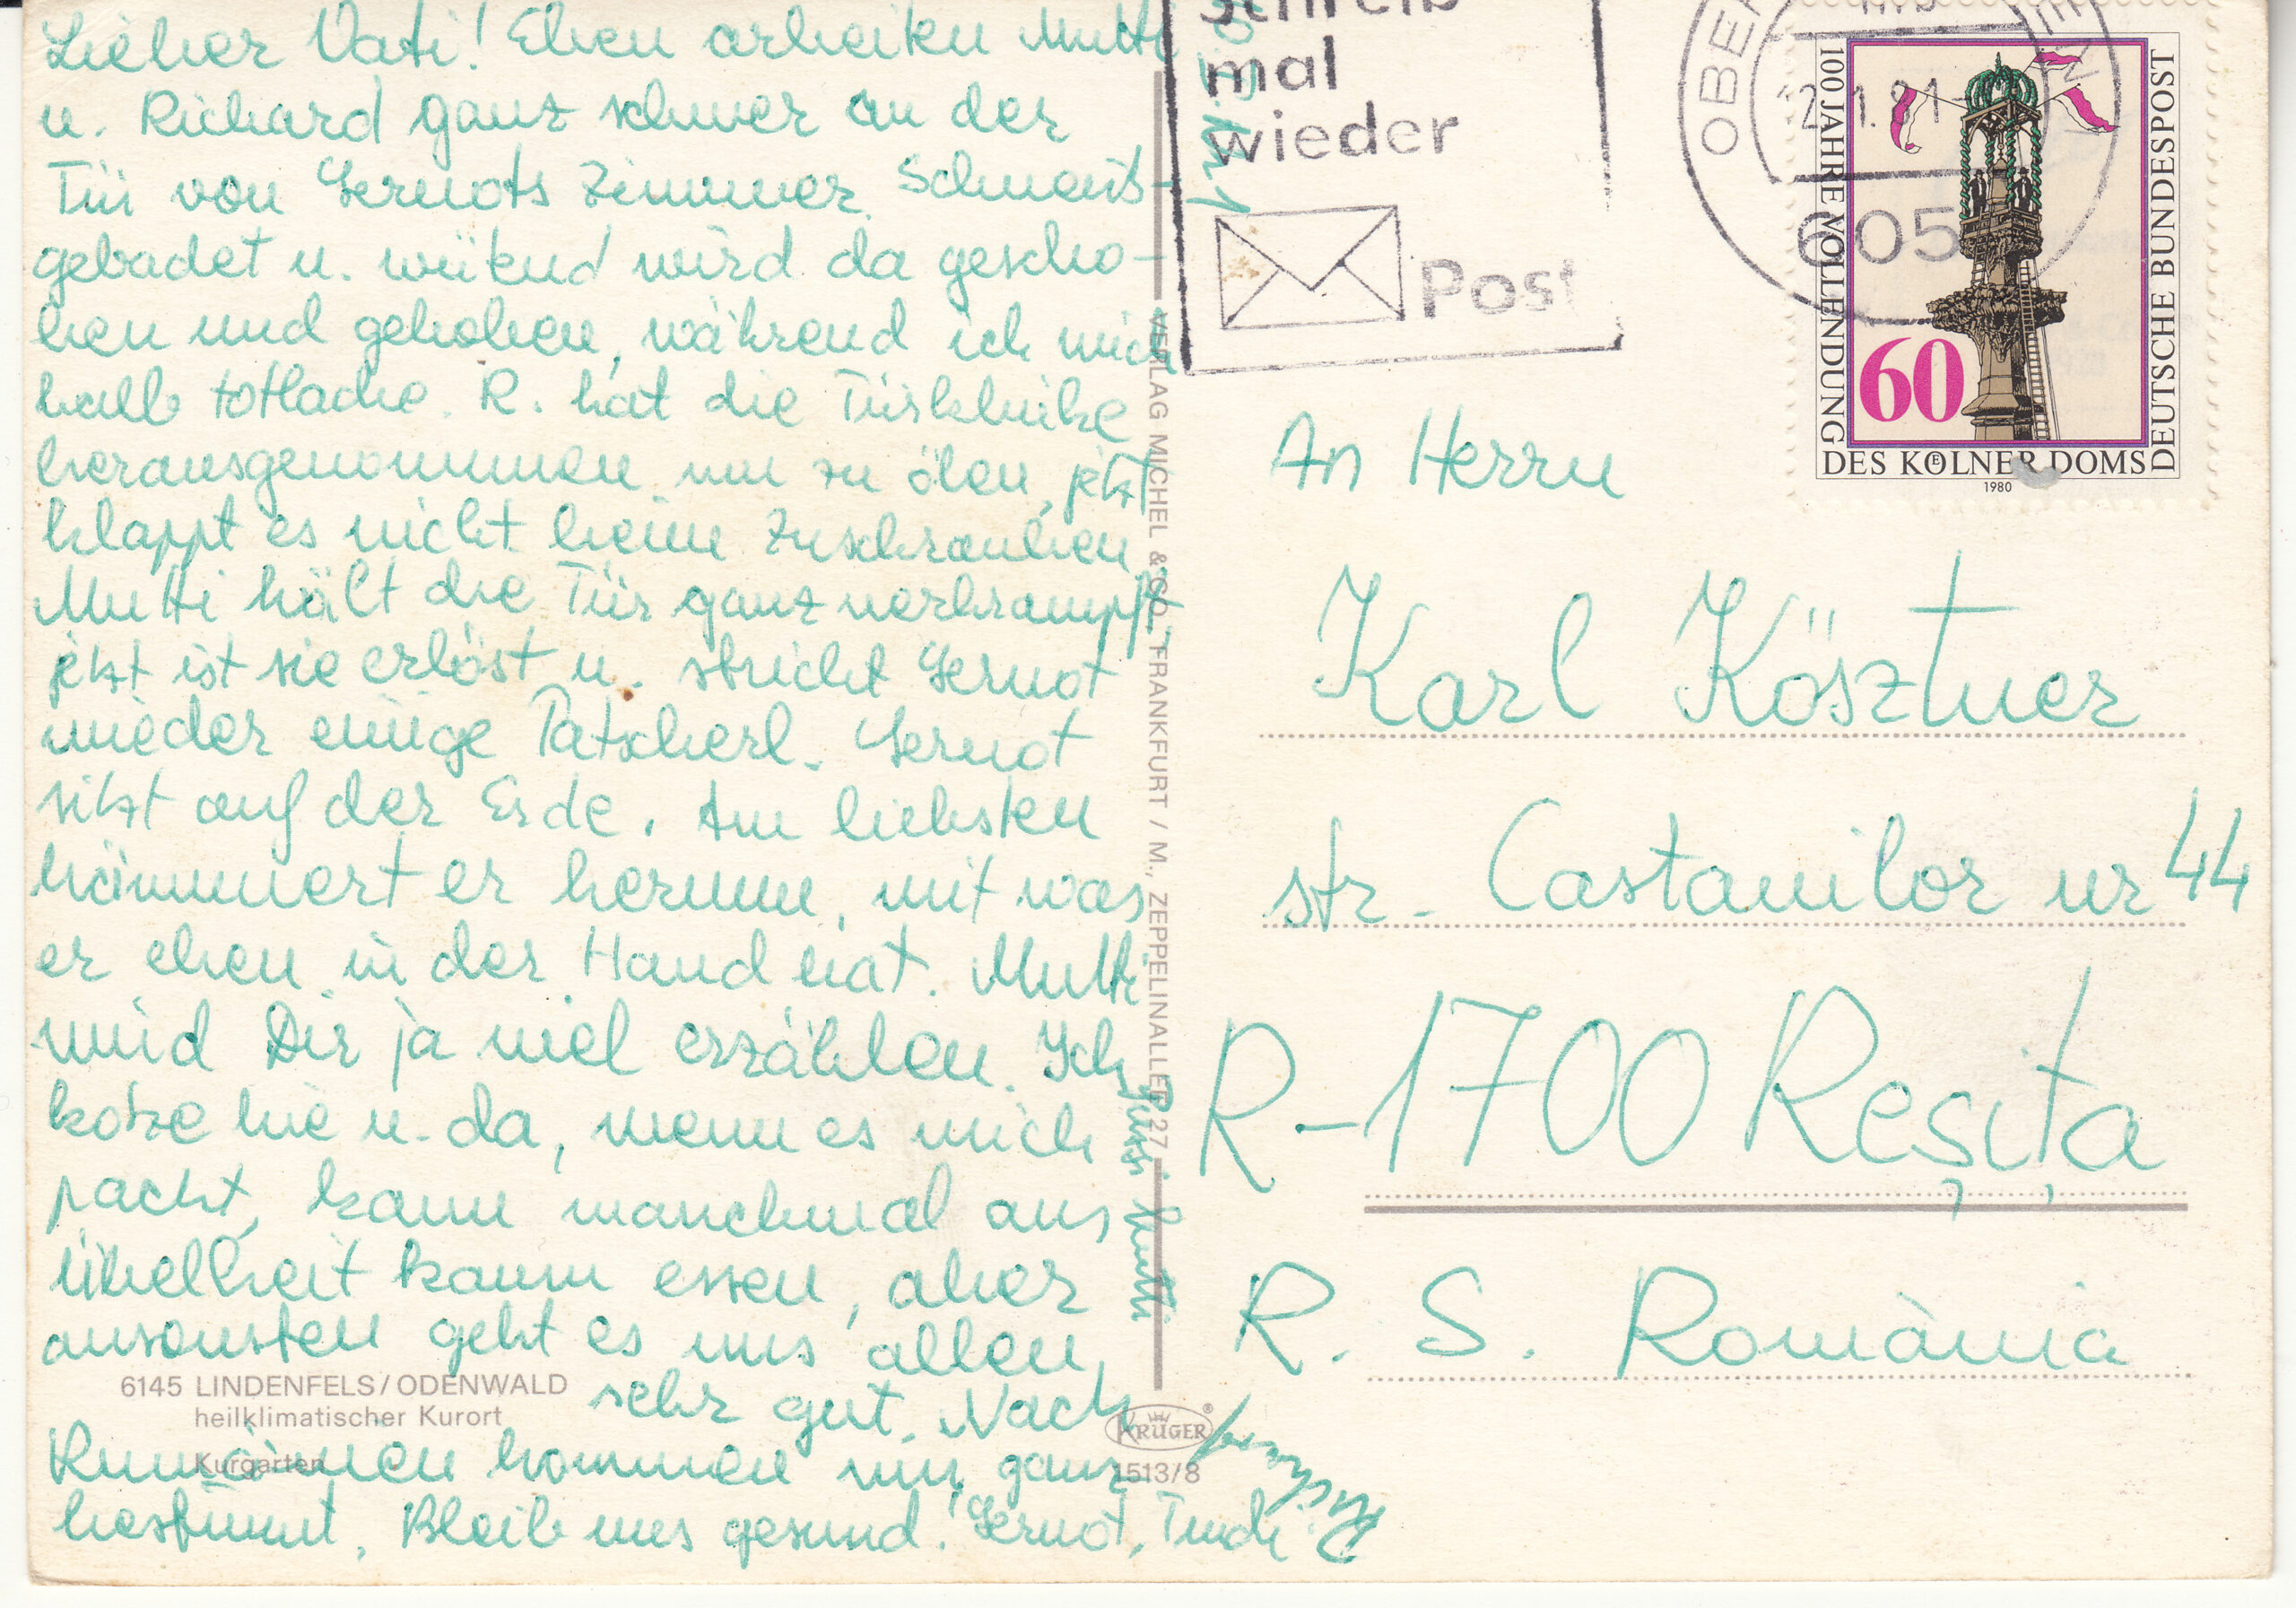 Lieber Vati! Eben arbeiten Mutti
u. Richard ganz schwer an der
Tür von Gernots Zimmer. Schweiß-
gebadet u. wütend wird da gescho-
ben und gehoben, während ich mich
halb totlache. R. hat die Türklinke
herausgenommen um zu ölen, jetzt
klappt es nicht beim Zuschrauben.
Mutti hält die Tür ganz verkrampft
jetzt ist sie erlöst u. strickt Gernot
wieder einige Patscherl. Gernot
sitzt auf der Erde. Am liebsten
hämmert er herum, mit was
er eben in der Hand hat. Mutti
wird Dir ja viel erzählen. Ich
kotze hie u. da, wenn es mich
packt, kann manchmal aus
Übelkeit kaum essen, aber
ansonsten geht es uns allen
sehr gut. Nach
Rumänien kommen wir ganz
bestimmt. Bleib uns gesund! Gernot, Tindi
Richard
Bussi Mutti
6145 LINDENFELS/ODENWALD
heilklimatischer Kurort
Kurgarten
VERLAG MICHEL & CO., FRANKFURT / M., ZEPPELINALLEE 27
KRÜGER®
1513/8
Schreib
mal
wieder
Post
605
100 JAHRE VOLLENDUNG
DES KÖLNER DOMS
DEUTSCHE BUNDESPOST
60
1980
An Herrn
Karl Kösztner
str. Castanilor nr 44
R-1700 Reșița
R. S. România